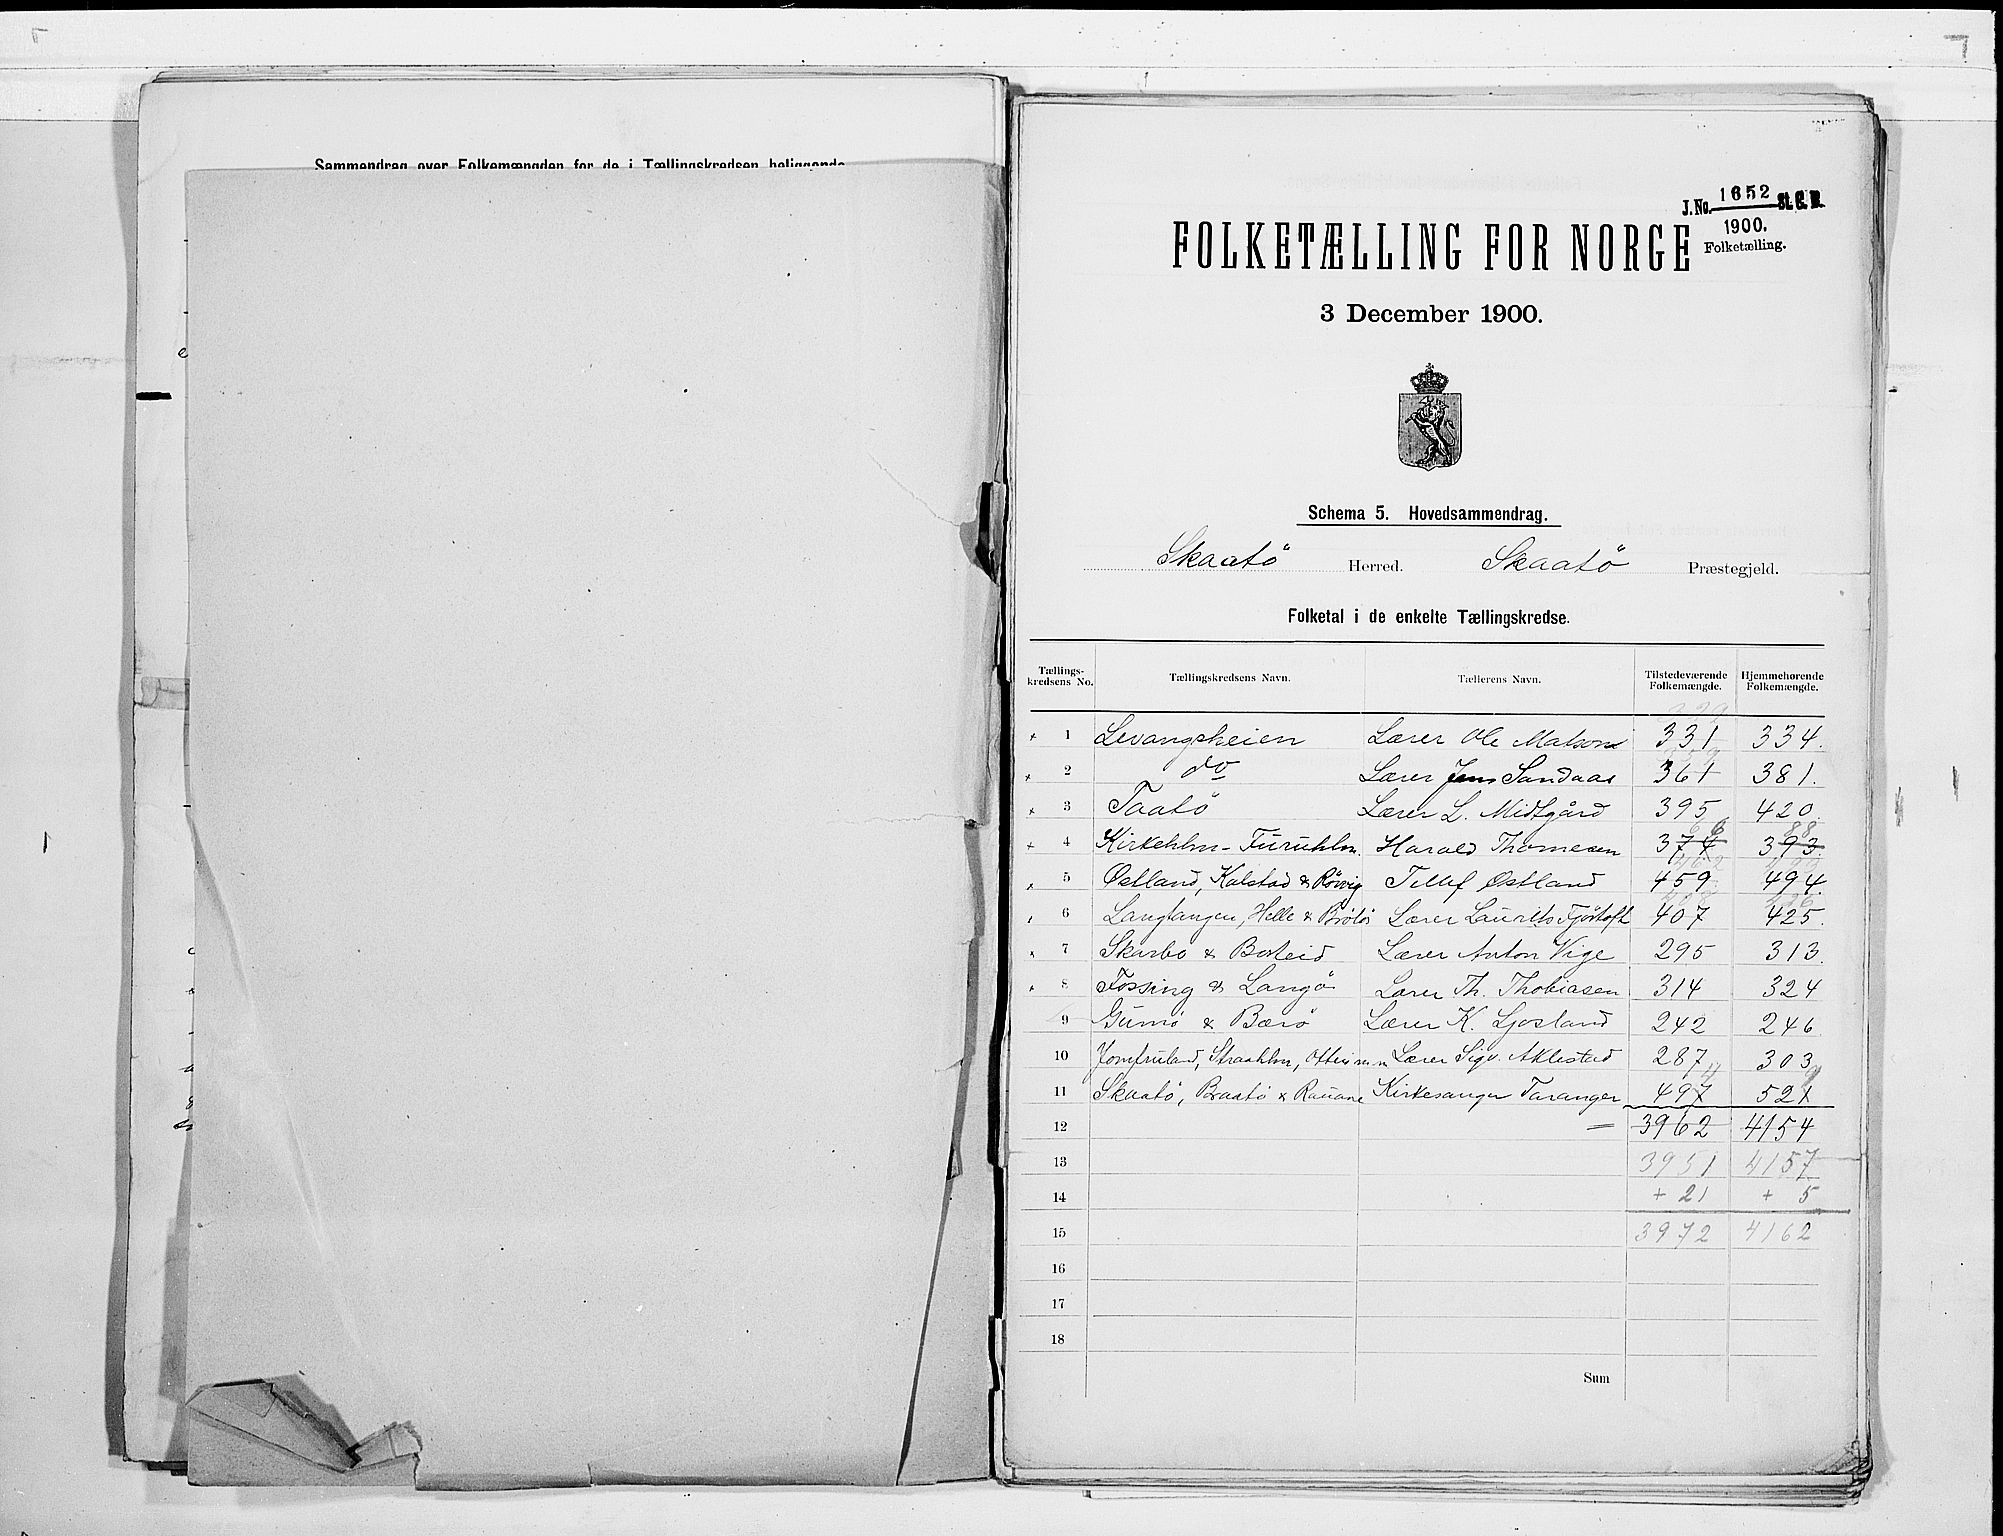 Sammendrag over Folkemængden for de i Tællingskredsen beliggende
J. No. 1652 St. C. B.
1900.
Folketælling.
FOLKETÆLLING FOR NORGE
3 December 1900.
Schema 5. Hovedsammendrag.
Skaatö Herred. Skaatö Præstegjeld.
Folketal i de enkelte Tællingskredse.
Tællings-kredsens No. Tællingskredsens Navn. Tællerens Navn. Tilstedeværende Folkemængde. Hjemmehørende Folkemængde.
1 Levangsheien Lærer Ole Matson 331 334.
2 do Lærer Jens Sandaas 361 381.
3 Taatö Lærer L. Midtgård 395 420.
4 Kirkehlm - Furuhlm. Harald Thomesen 374 393
5 Østland, Kalstad & Rörvig Tellef Østland 459 494.
6 Langtangen, Helle & Brötö Lærer Laurits Fjörtoft 407 425.
7 Skarbo & Borteid Lærer Anton Vige 295 313.
8 Fossing & Langö Lærer Th. Thobiasen 314 324
9 Gumö & Bærö Lærer K. Ljosland 242 246.
10 Jomfruland, Straahlm, Lærer Sigv. Aklestad 287 303
11 Skaatö, Braatö & Rauane Kirkesanger Taranger 497 527
12 3962 4154
13 3951 4157
14 + 21 + 5
15 3972 4162
16
17
18
Sum